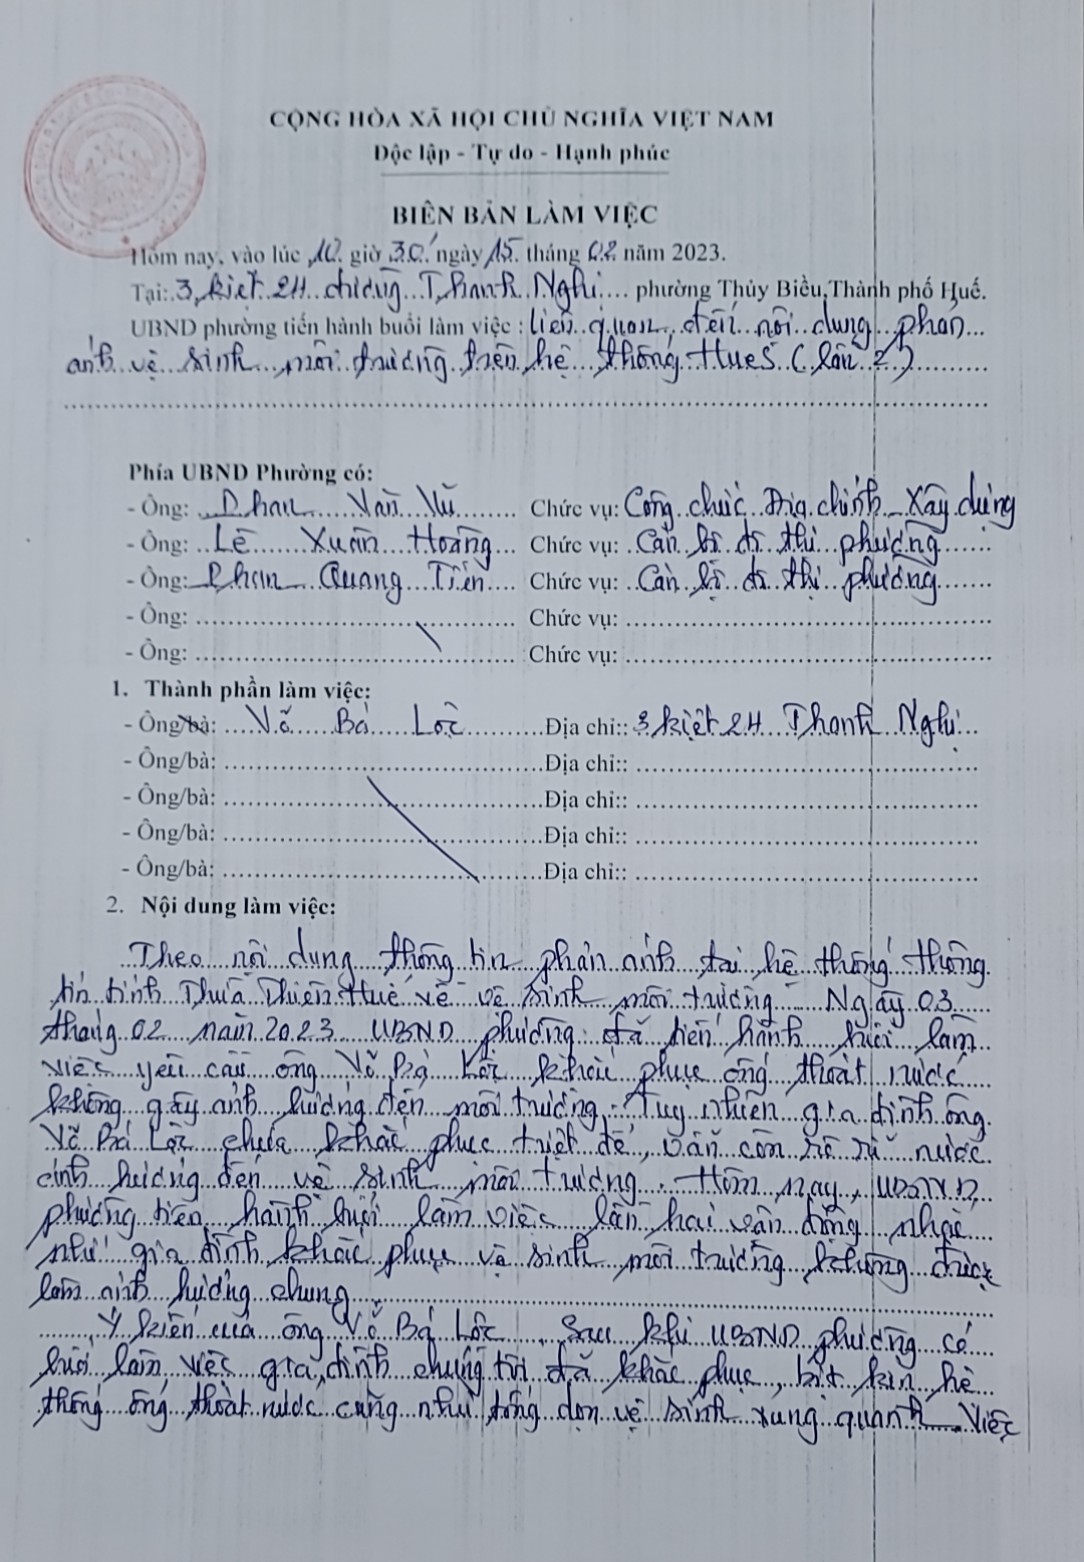 CỘNG HÒA XÃ HỘI CHỦ NGHĨA VIỆT NAM
Độc lập - Tự do - Hạnh phúc
BIÊN BẢN LÀM VIỆC
Hôm nay, vào lúc 10 giờ 30' ngày 15 tháng 02 năm 2023.
Tại: 3 kiệt 24 đường Thanh Nghị phường Thủy Biều, Thành phố Huế.
UBND phường tiến hành buổi làm việc : liên quan đến nội dung phản
ánh vệ sinh môi trường trên hệ thống HueS (lần 2)
Phía UBND Phường có:
- Ông: Phan Văn Vũ Chức vụ: Công chức Địa chính Xây dựng
- Ông: Lê Xuân Hoàng Chức vụ: Cán bộ đô thị phường
- Ông: Phan Quang Tiến Chức vụ: Cán bộ đô thị phường
- Ông: Chức vụ:
- Ông: Chức vụ:
1. Thành phần làm việc:
- Ông/bà: Võ Bá Lộc Địa chỉ:: 3 kiệt 24 Thanh Nghị
- Ông/bà: Địa chỉ::
- Ông/bà: Địa chỉ::
- Ông/bà: Địa chỉ::
- Ông/bà: Địa chỉ::
2. Nội dung làm việc:
Theo nội dung thông tin phản ánh tại hệ thống thông
tin tỉnh Thừa Thiên Huế về vệ sinh môi trường Ngày 03
tháng 02 năm 2023 UBND phường đã tiến hành buổi làm
việc yêu cầu ông Võ Bá Lộc khắc phục ống thoát nước
không gây ảnh hưởng đến môi trường. Tuy nhiên gia đình ông
Võ Bá Lộc chưa khắc phục triệt để, vẫn còn rò rỉ nước
ảnh hưởng đến vệ sinh môi trường. Hôm nay, UBND
phường tiến hành buổi làm việc lần hai vận động nhắc
nhở gia đình khắc phục vệ sinh môi trường không được
làm ảnh hưởng chung.
Ý kiến của ông Võ Bá Lộc, Sau khi UBND phường có
buổi làm việc gia đình chúng tôi đã khắc phục, bịt kín hệ
thống ống thoát nước cũng như tổng dọn vệ sinh xung quanh. Việc